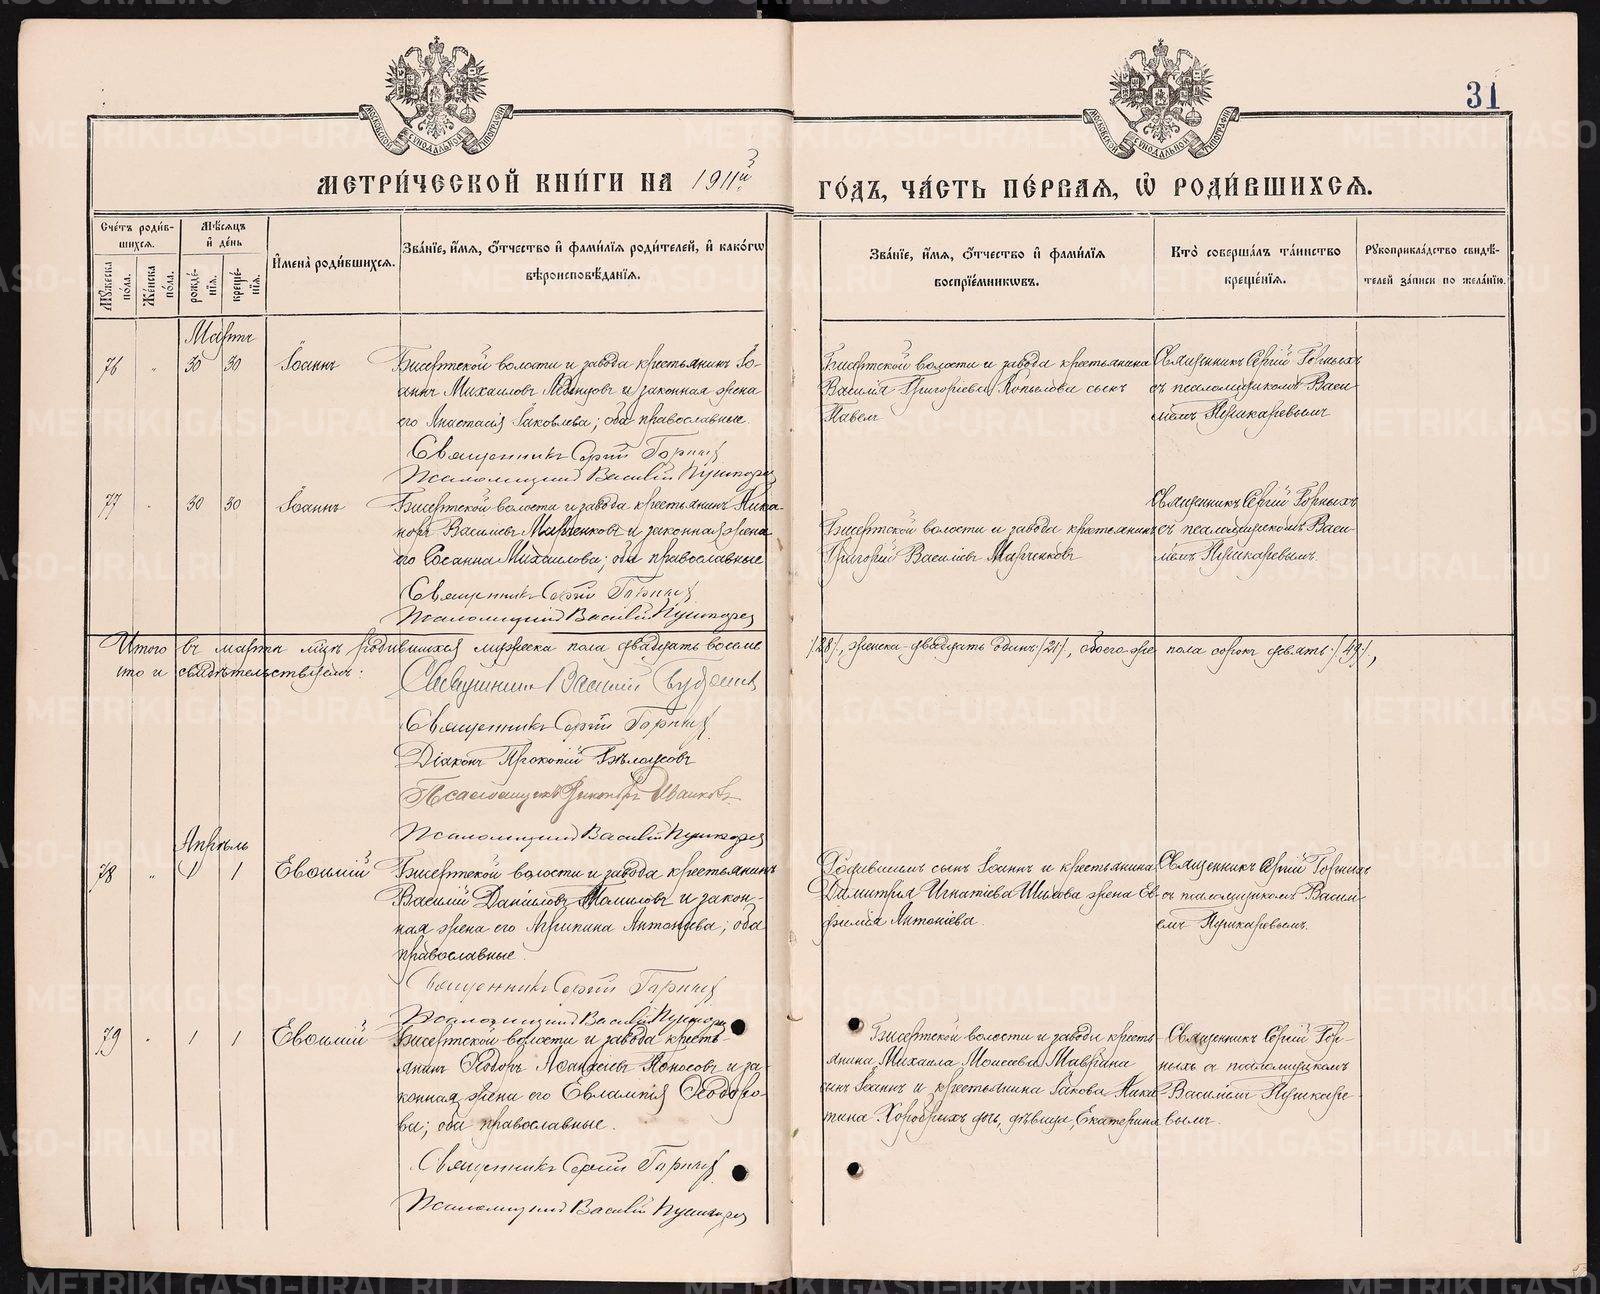 31
МЕТРИ́ЧЕСКОЙ КНИ́ГИ НА 1911й
ГО́ДЪ, ЧА́СТЬ ПЕ́РВАѦ, Ѿ РОДИ́ВШИХСѦ.
Сче́тъ роди́в-
шихсѧ.
Мꙋ́жеска по́ла.
Же́нска по́ла.
Мѣ́сѧцъ
и҆ де́нь
рожде́-
нїѧ.
креще́-
нїѧ.
И҆мена̀ роди́вшихсѧ.
Зва́нїе, и҆́мѧ, ѻ҆́тчество и҆ фами́лїѧ роди́телей, и҆ како́гѡ
вѣроисповѣ́данїѧ.
Зва́нїе, и҆́мѧ, ѻ҆́тчество и҆ фами́лїѧ
воспрїе́мникѡвъ.
Кто̀ соверша́лъ та́инство
креще́нїѧ.
Рꙋкоприкла́дство свидѣ́-
телей за́писи по жела́нїю.
Мартъ
76 " 30 30 Іоаннъ
Бисертской волости и завода крестьянинъ Іо-
аннъ Михаиловъ и законная жена
его Анастасія Іаковлева; оба православные.
Священникъ Сергій Горныхъ
Псаломщикъ Василій Пушкаревъ
Бисертской волости и завода крестьянина
Василія Григоріева Копылова сынъ
Павелъ
Священникъ Сергій Горныхъ
съ псаломщикомъ Васи-
ліемъ Пушкаревымъ
77 " 30 30 Іоаннъ
Бисертской волости и завода крестьянинъ Ника-
норъ Василіевъ Марченковъ и законная жена
его Сосанна Михаилова; оба православные
Священникъ Сергій Горныхъ
Псаломщикъ Василій Пушкаревъ
Бисертской волости и завода крестьянинъ
Григорій Василіевъ Марченковъ
Священникъ Сергій Горныхъ
съ псаломщикомъ Васи-
ліемъ Пушкаревымъ.
Итого въ мартѣ мцѣ родившихся мужеска пола двадцать восемь /28/, женска двадцать одинъ /21/, обоего же пола сорокъ девять /49/,
что и свидѣтельствуемъ:
Священникъ Василій
Священникъ Сергій Горныхъ
Діаконъ Прокопій Бѣлоусовъ
Псаломщикъ Иванковъ
Псаломщикъ Василій Пушкаревъ
Апрѣль
78 " 1 1 Евѳимій
Бисертской волости и завода крестьянинъ
Василій Даніиловъ Томиловъ и закон-
ная жена его Агрипина Антоніева; оба
православные.
Священникъ Сергій Горныхъ
Псаломщикъ Василій Пушкаревъ
Родившимъ сынъ Іоаннъ и крестьянина
Димитрія Игнатіева Шилова жена Ев-
фимія Антоніева.
Священникъ Сергій Горныхъ
съ псаломщикомъ Васи-
емъ Пушкаревымъ.
79 " 1 1 Евѳимій
Бисертской волости и завода кресть-
янинъ Ѳеодоръ Аѳанасіевъ Поносовъ и за-
конная жена его Евлампія Ѳеодоро-
ва; оба православные.
Священникъ Сергій Горныхъ
Псаломщикъ Василій Пушкаревъ
Бисертской волости и завода кресть-
янина Михаила Моисеева Маврина
сынъ Іоаннъ и крестьянина Іакова Ники-
тина Хоробрыхъ дчь, дѣвица, Екатерина
Священникъ Сергій Гор-
ныхъ съ псаломщикомъ
Василіемъ Пушкаре-
вымъ.